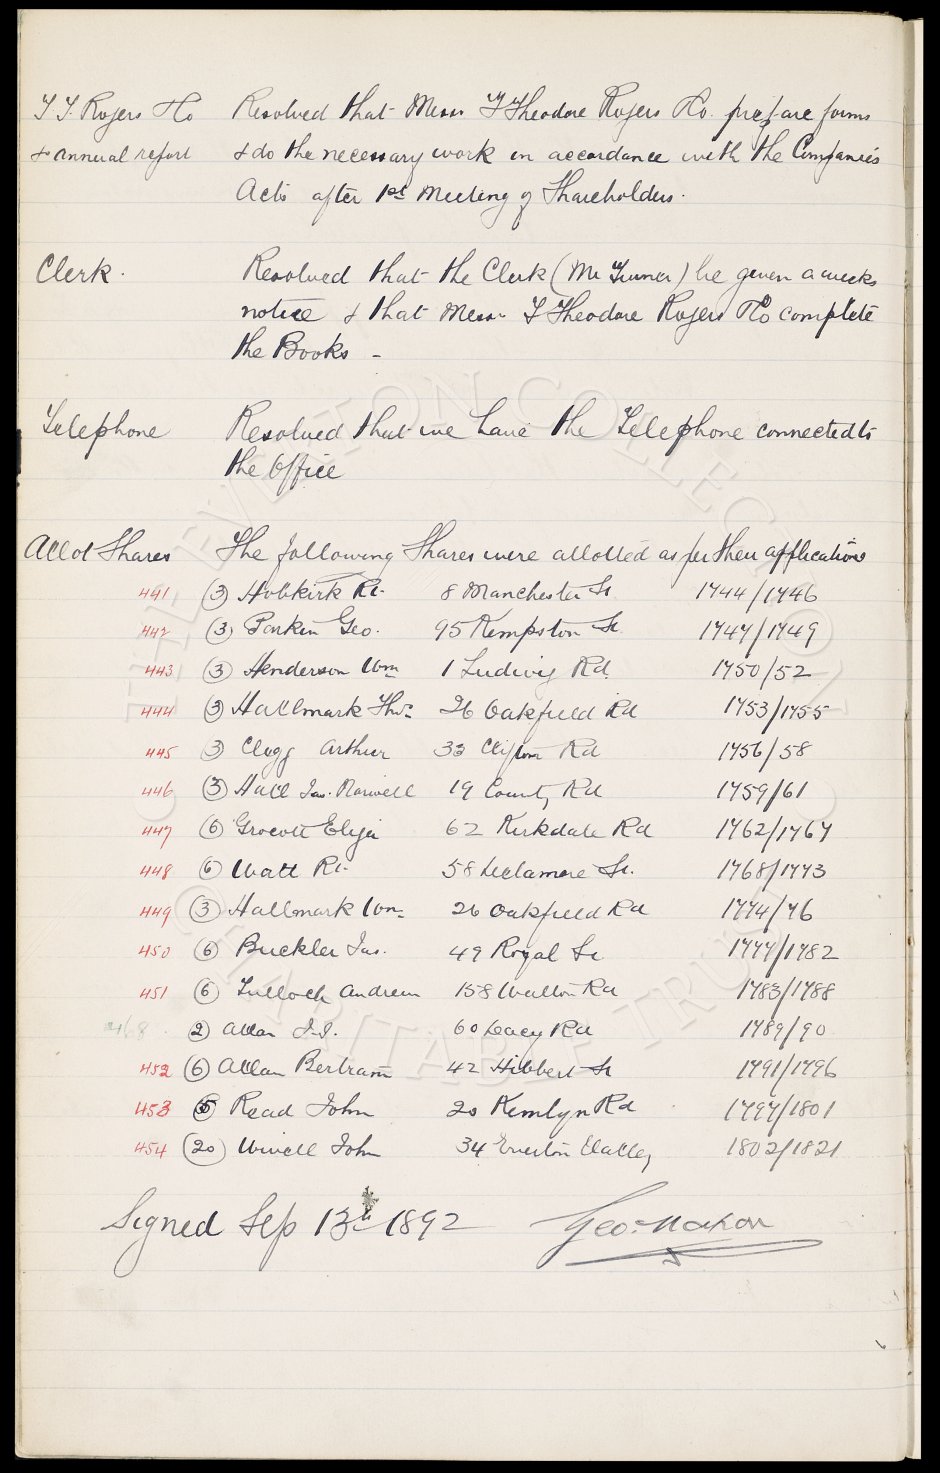 T. T. Rogers & Co Resolved that Messrs T Theodore Rogers & Co. prepare forms
& annual report & do the necessary work in accordance with the Companies
Acts after 1st Meeting of Shareholders.
Clerk. Resolved that the Clerk (Mr Turner) be given a weeks
notice & that Messrs T Theodore Rogers & Co complete
the Books -
Telephone Resolved that we have the Telephone connected to
the Office
Allot Shares The following Shares were allotted as per their applications
441 (3) Hobkirk Rt. 8 Manchester St 1744/1746
442 (3) Parkin Geo. 95 Kempston St. 1747/1749
443 (3) Henderson Wm 1 Ludwig Rd. 1750/52
444 (3) Hallmark Thos 26 Oakfield Rd 1753/1755
445 (3) Clegg Arthur 33 Clifton Rd 1756/58
446 (3) Hall Jas. 19 County Rd 1759/61
447 (6) Grocott Elija 62 Kirkdale Rd 1762/1767
448 (6) Watt Rt. 58 St. 1768/1773
449 (3) Hallmark Wm 26 Oakfield Rd 1774/76
450 (6) Buckler Jas. 49 Royal St 1777/1782
451 (6) Tulloch Andrew 158 Walton Rd 1783/1788
468 (2) Allan J.J. 60 Lacey Rd 1789/90
452 (6) Allan Bertram 42 Hibbert St 1791/1796
453 (5) Read John 20 Kemlyn Rd 1797/1801
454 (20) John 34 Everton Valley 1802/1821
Signed Sep 13th 1892 Geo. Mahon
THE EVERTON COLLECTION
CHARITABLE TRUST